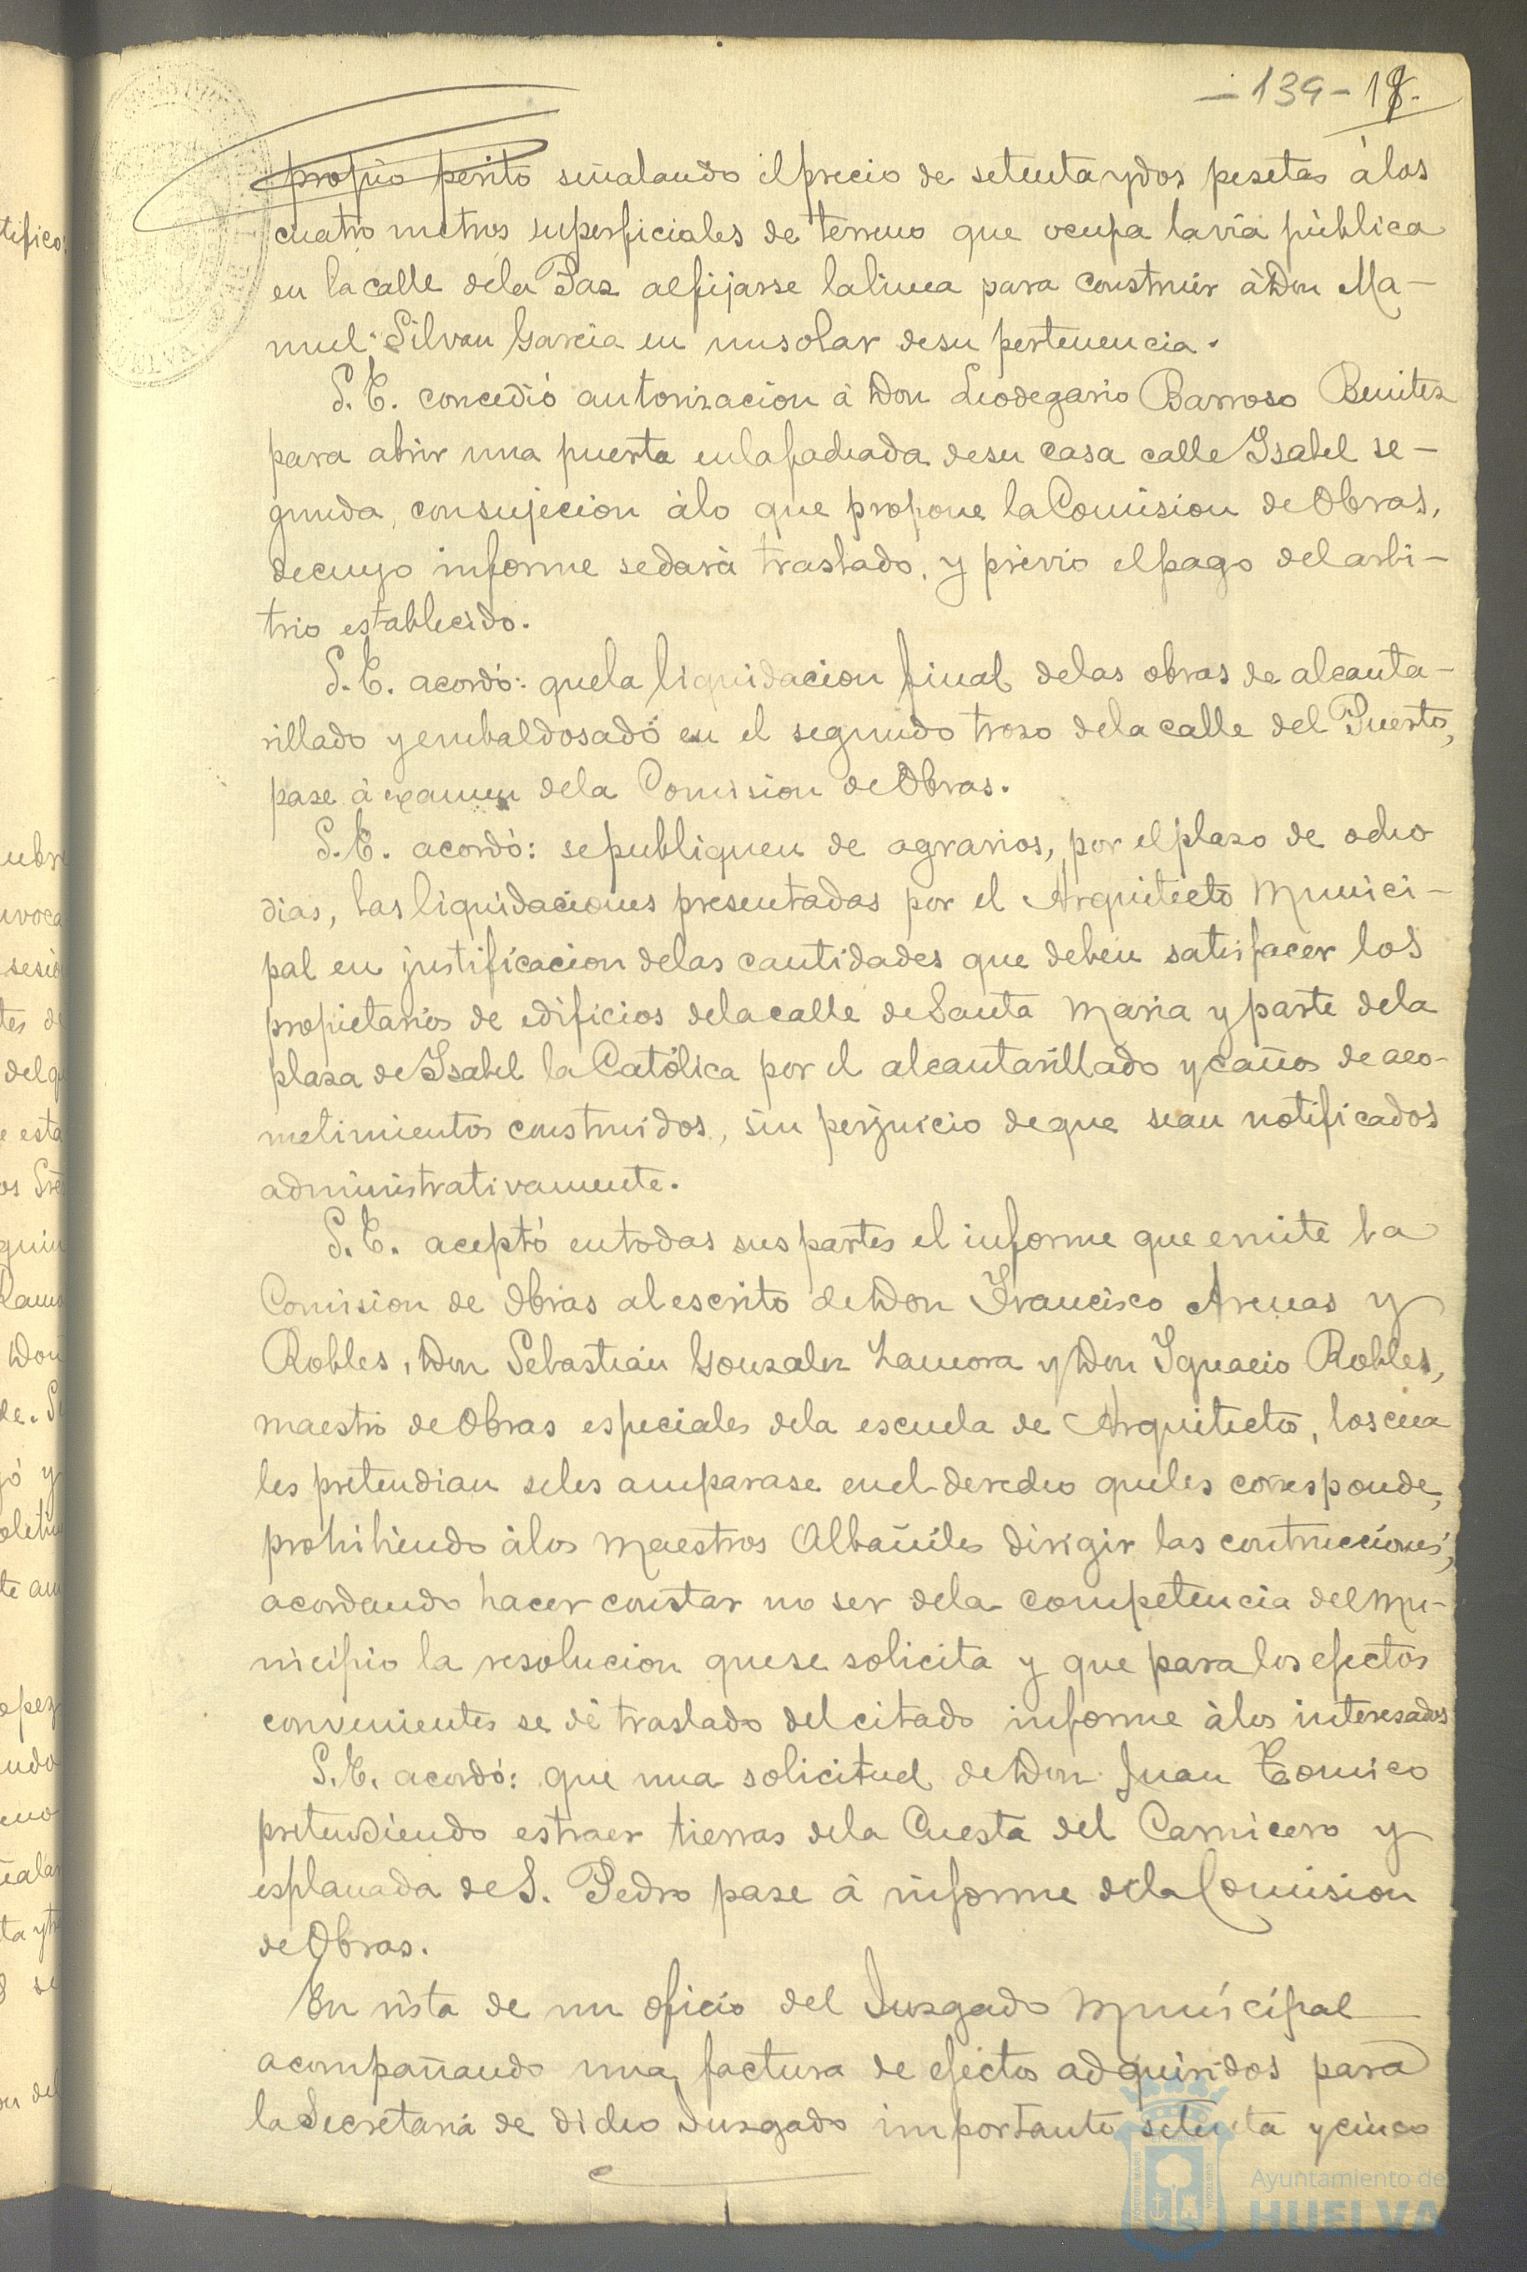 - 139 - 18.
propio perito señalando el precio de setenta y dos pesetas á los
cuatro metros superficiales de terreno que ocupa la via pública
en la calle de la Paz al fijarse la linea para construir á Don Ma-
nuel Silvan Garcia en un solar de su pertenencia.
S. E. concedió autorizacion á Don Leodegario Barroso Benitez
para abrir una puerta en la fachada de su casa calle Isabel se-
gunda, con sujecion á lo que propone la Comision de Obras,
de cuyo informe se dará traslado, y prévio el pago del arbi-
trio establecido.
S. E. acordó: que la liquidacion final de las obras de alcanta-
rillado y embaldosado en el segundo trozo de la calle del Puerto,
pase á examen de la Comision de Obras.
S. E. acordó: se publiquen de agravios, por el plazo de ocho
dias, las liquidaciones presentadas por el Arquitecto Munici-
pal en justificacion de las cantidades que deben satisfacer los
propietarios de edificios de la calle de Santa Maria y parte de la
plaza de Isabel la Católica por el alcantarillado y caños de aco-
metimientos construidos, sin perjuicio de que sean notificados
administrativamente.
S. E. aceptó en todas sus partes el informe que emite la
Comision de Obras al escrito de Don Francisco Arenas y
Robles, Don Sebastián Gonzalez Zamora y Don Ignacio Robles,
maestro de Obras especiales de la escuela de Arquitecto, los cua
les pretendian se les amparase en el derecho que les corresponde,
prohibiendo á los Maestros Albañiles dirigir las contrucciones,
acordando hacer constar no ser de la competencia del Mu-
nicipio la resolucion que se solicita y que para los efectos
convenientes se dé traslado del citado informe á los interesados
S. E. acordó: que una solicitud de Don Juan Tomico
pretendiendo estraer tierras de la Cuesta del Carnicero y
esplanada de S. Pedro pase á informe de la Comision
de Obras.
En vista de un oficio del Juzgado Municipal
acompañando una factura de efectos adquiridos para
la Secretaria de dicho Juzgado importante setenta y cinco
Ayuntamiento de
HUELVA